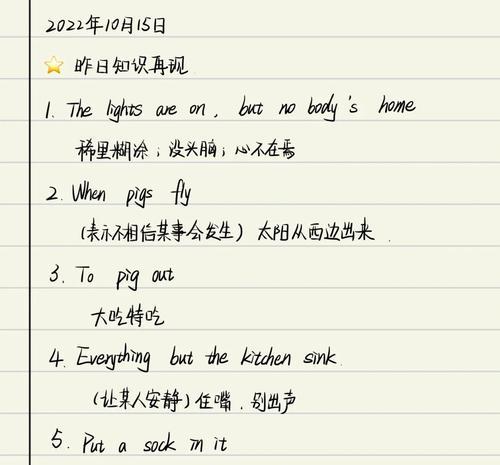 2022年10月15日
⭐ 昨日知识再现
1. The lights are on, but no body's home
稀里糊涂；没头脑；心不在焉
2. When pigs fly
(表示不相信某事会发生) 太阳从西边出来.
3. To pig out
大吃特吃
4. Everything but the kitchen sink.
(让某人安静) 住嘴.别出声
5. Put a sock in it